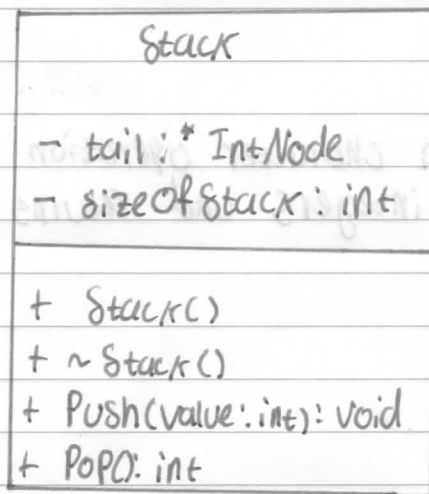 Stack
- tail: * IntNode
- sizeOfStack: int
+ Stack()
+ ~Stack()
+ Push(value: int): void
+ Pop(): int